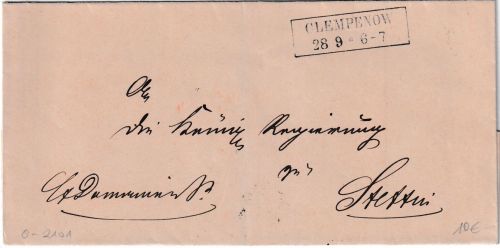 CLEMPENOW
28 9 * 6-7
An
die Königl. Regierung
zu
Stettin
0-2101
10€